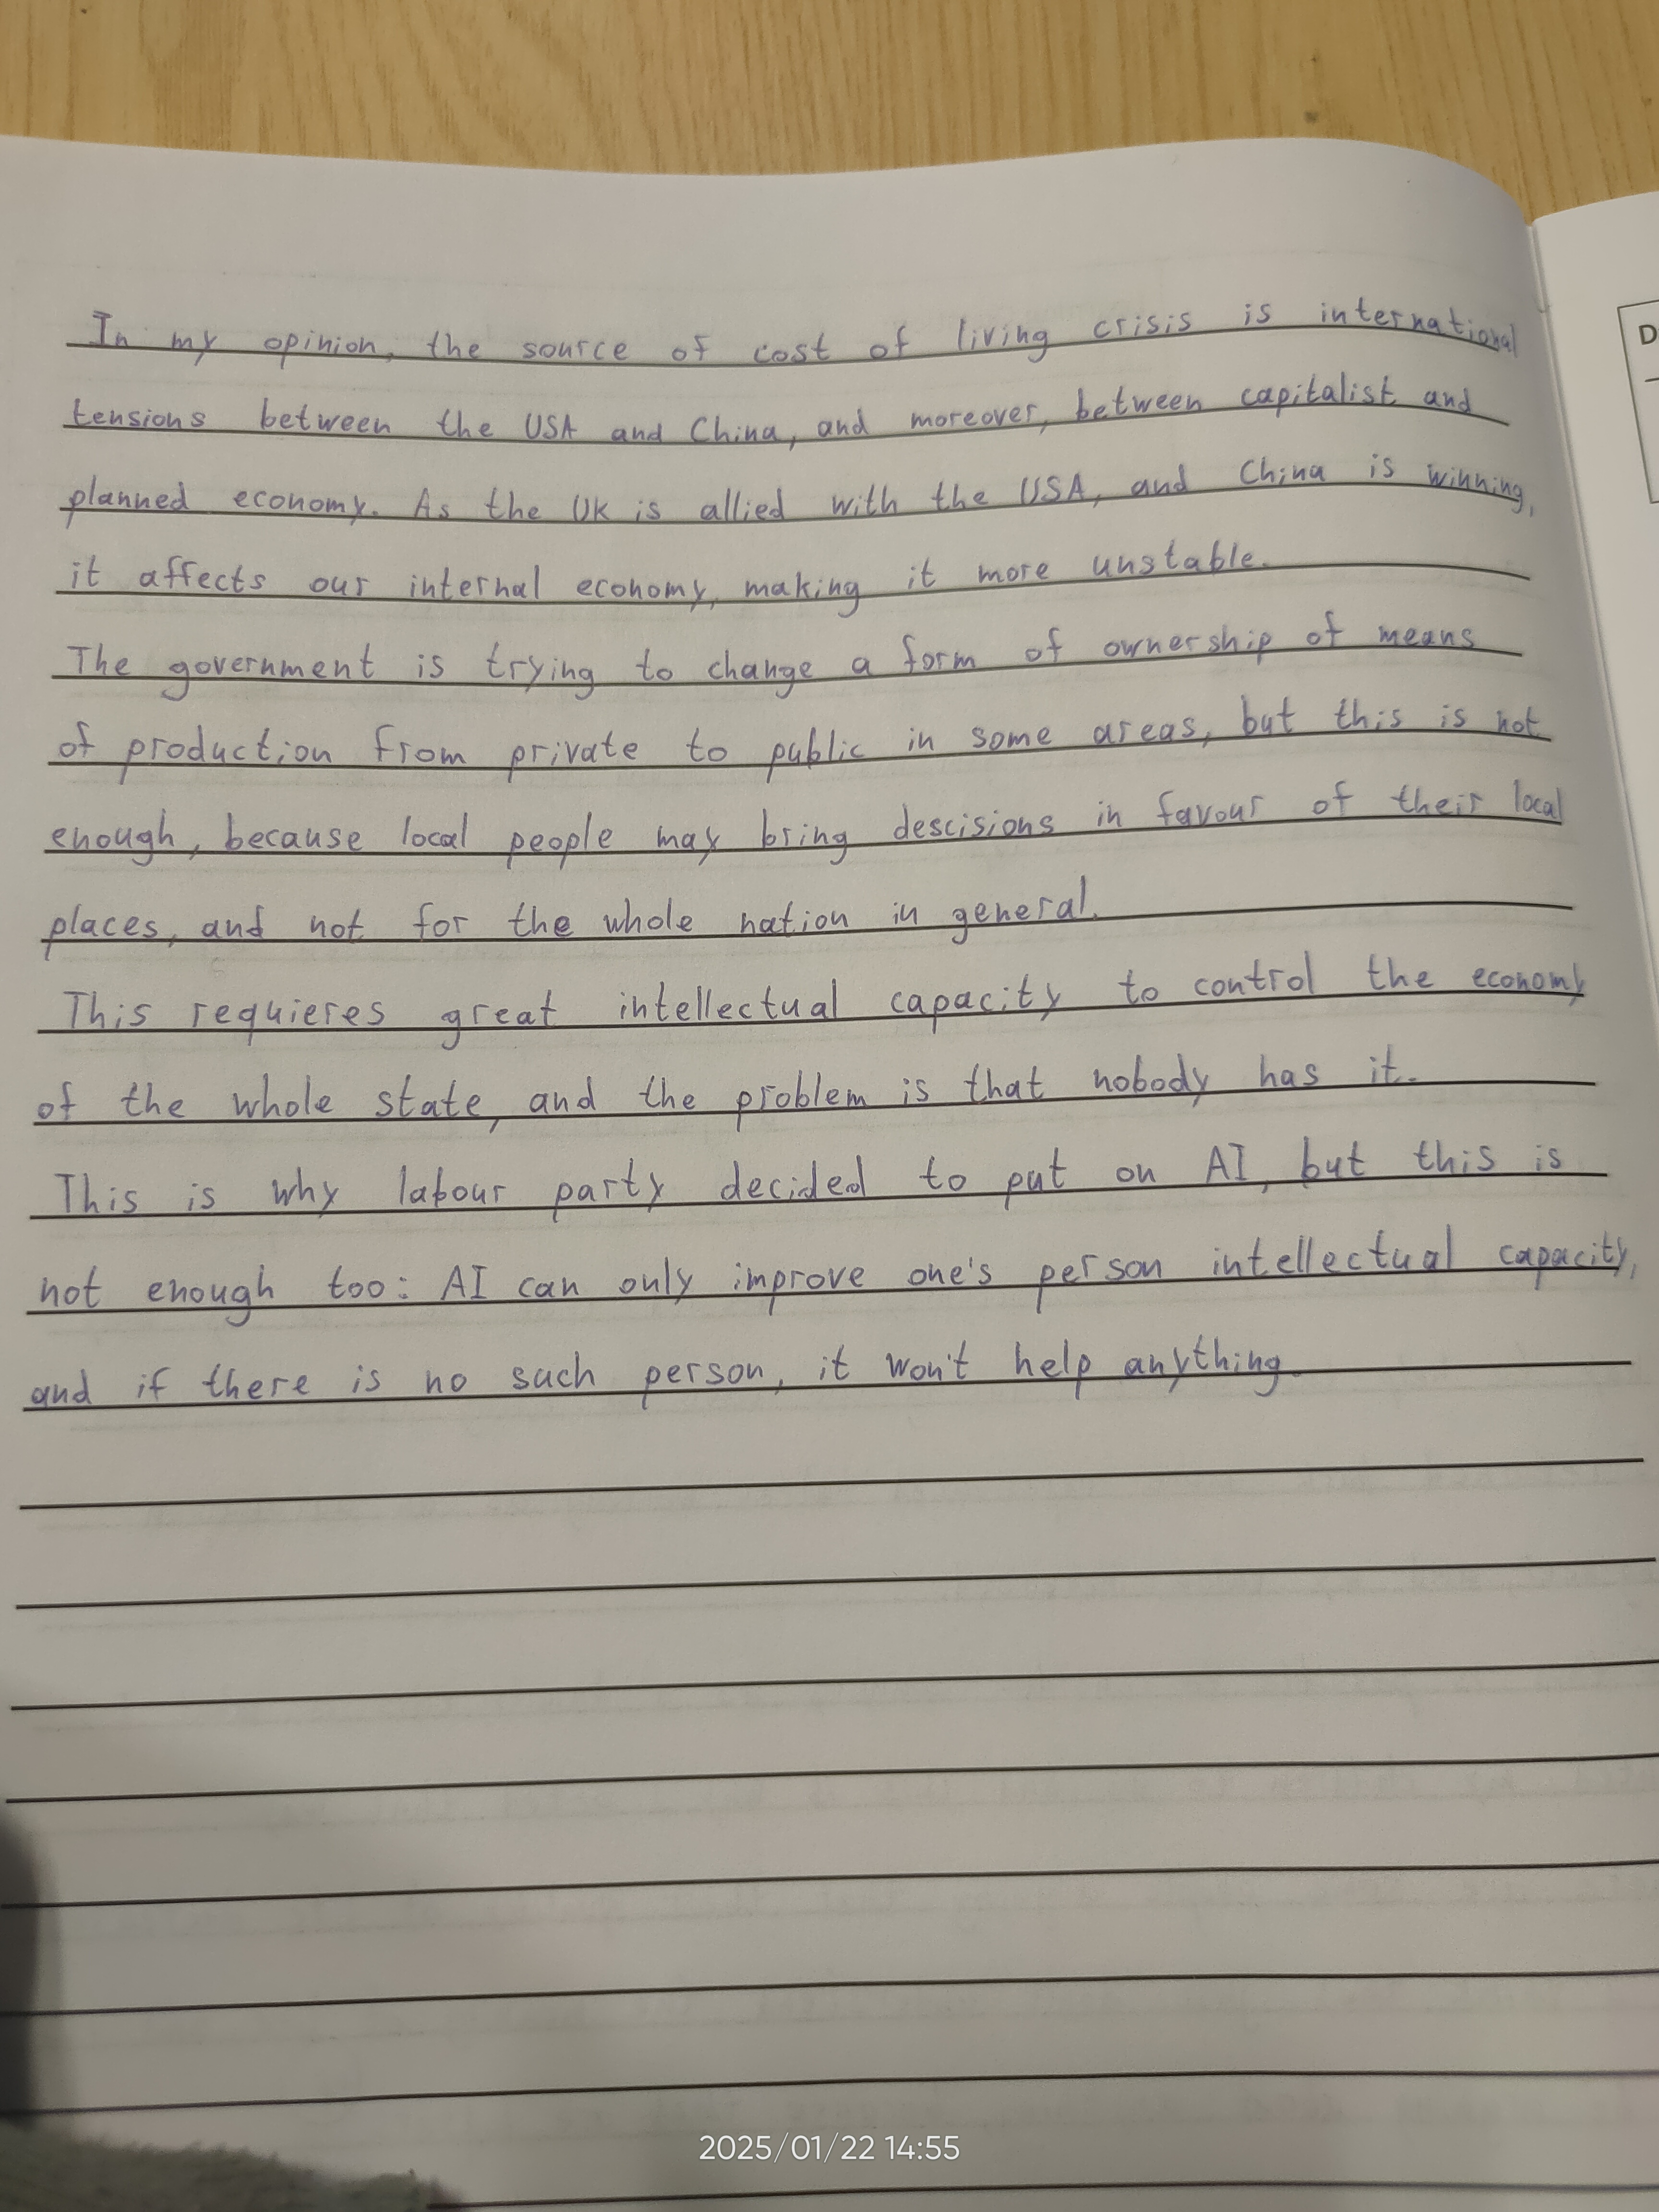 In my opinion, the source of cost of living crisis is international
tensions between the USA and China, and moreover, between capitalist and
planned economy. As the UK is allied with the USA, and China is winning,
it affects our internal economy, making it more unstable.
The government is trying to change a form of ownership of means
of production from private to public in some areas, but this is not
enough, because local people may bring descisions in favour of their local
places, and not for the whole nation in general.
This requieres great intellectual capacity to control the economy
of the whole state, and the problem is that nobody has it.
This is why labour party decided to put on AI, but this is
not enough too: AI can only improve one's person intellectual capacity,
and if there is no such person, it won't help anything.
D
2025/01/22 14:55